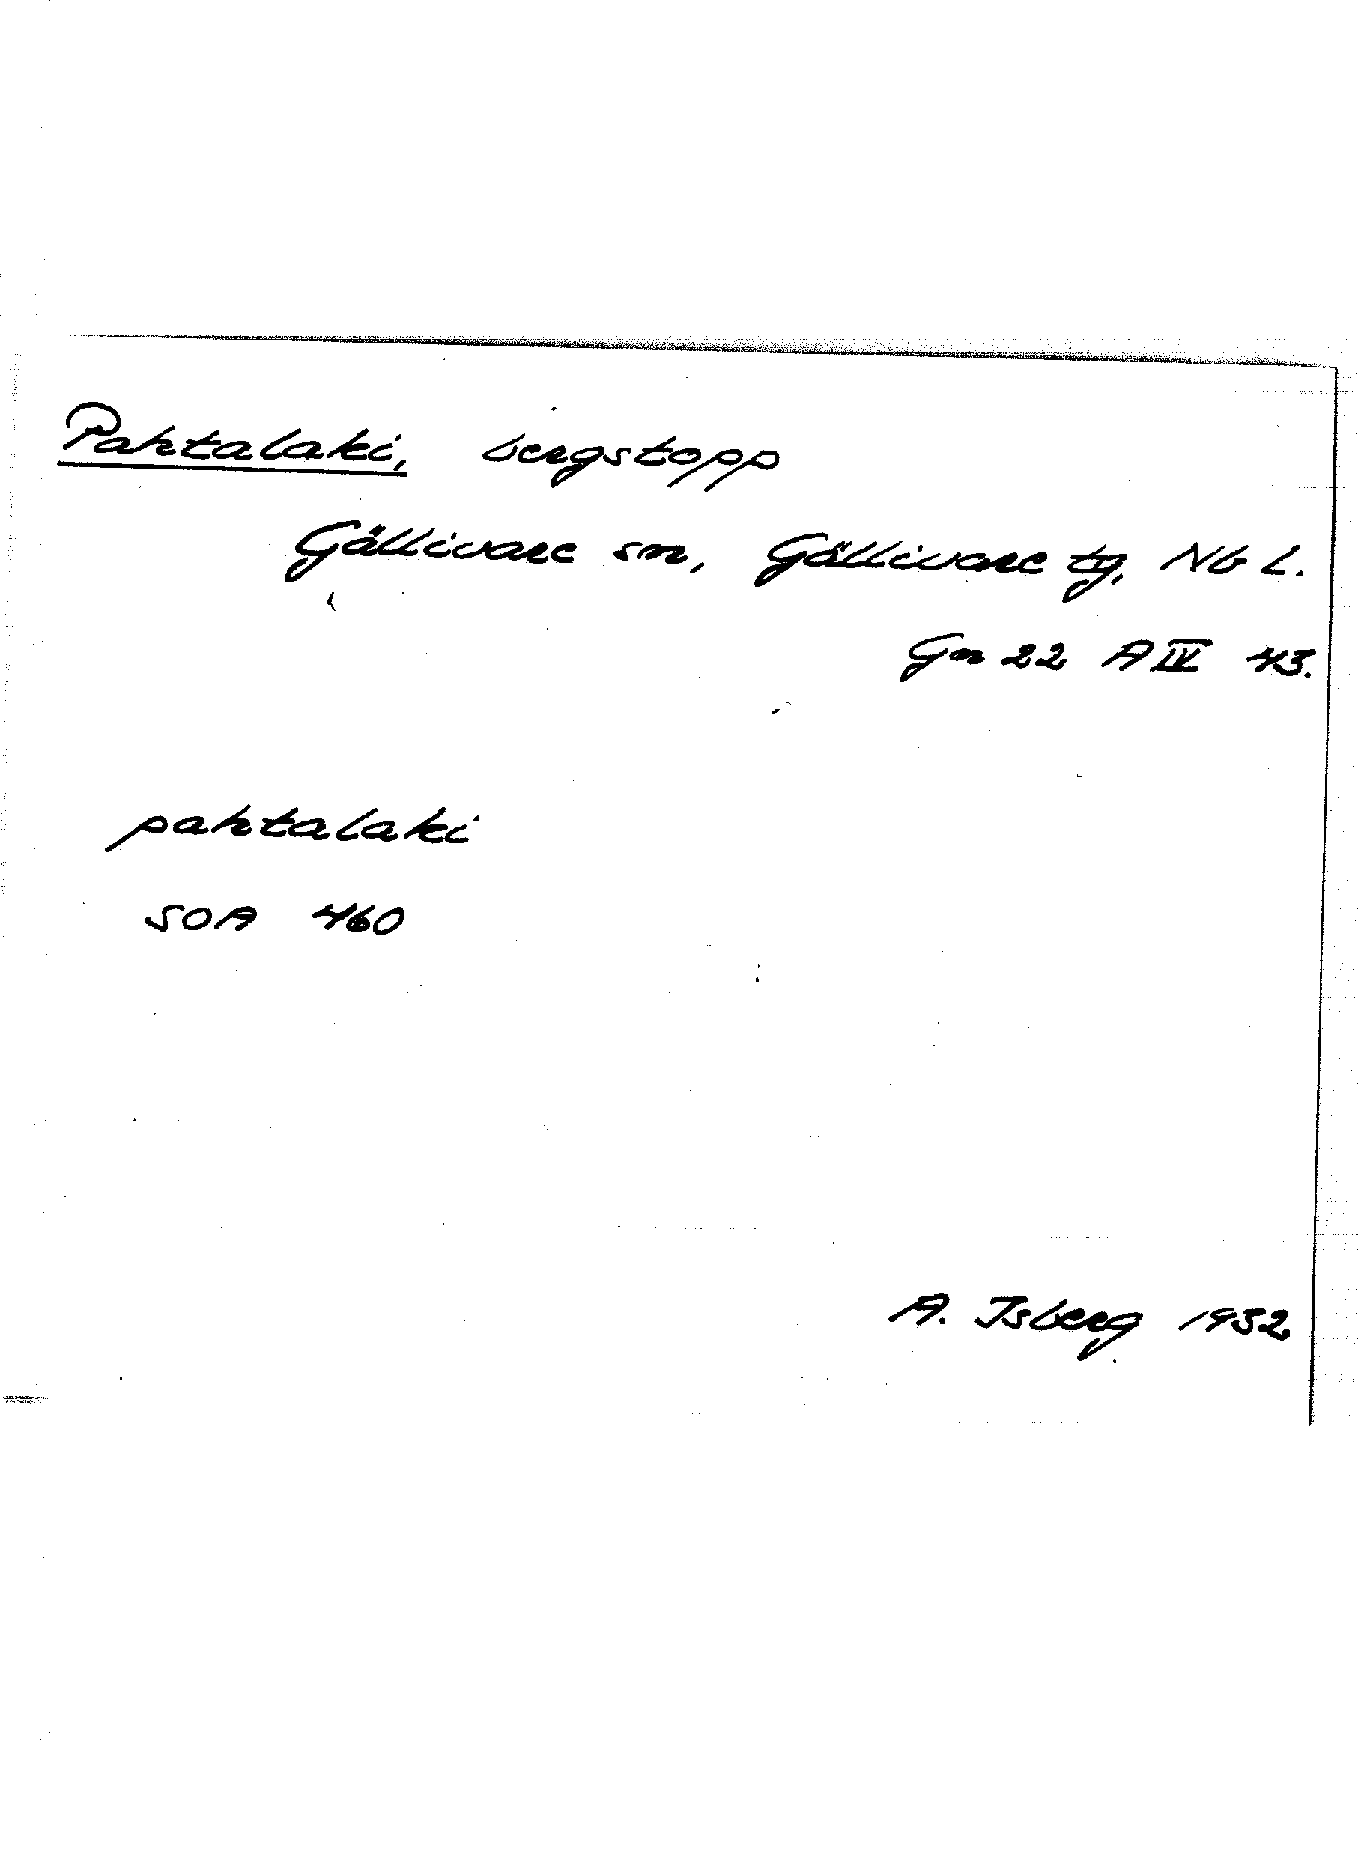 Pahtalaki, bergstopp
Gällivare sn, Gällivare tg, Nb L.
Gn 22 A IV 43.
pahtalaki
SOA 460
A. Isberg 1932